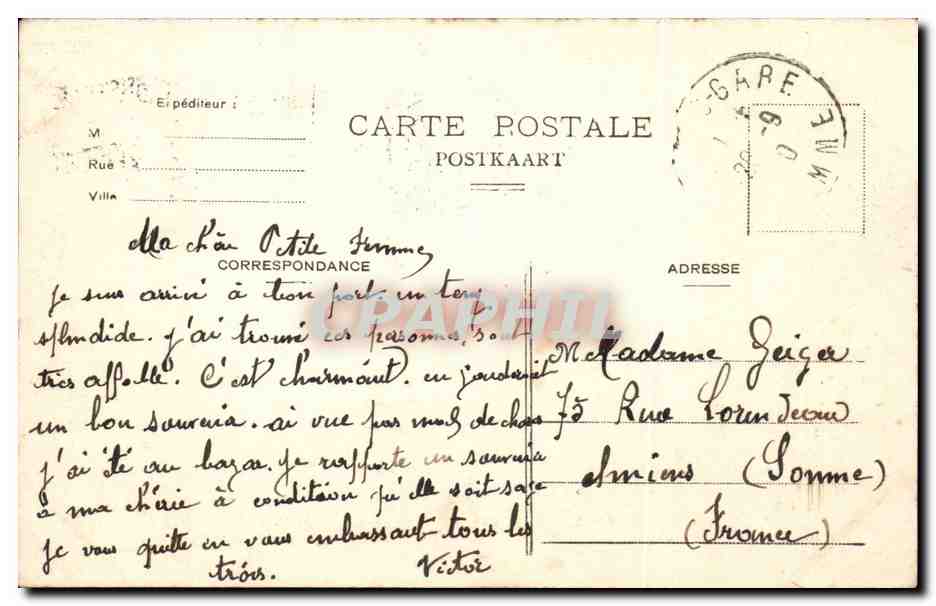 Expéditeur :
M
Rue
Ville
CARTE POSTALE
POSTKAART
GARE
Ma chèr Petite Femme
CORRESPONDANCE
je suis arrivé à bon port. un temp
splendide. j'ai trouvé ces personnes, sont
très affollé. C'est charmant. en garderait
un bon souvenir. ai vue pas mal de chose
j'ai été au bazar. je rapporte un souvenir
à ma chérie à condition qu'elle soit sage
je vous quitte en vous embrassant tous les
trois. Victor
ADRESSE
Madame Geiger
75 Rue
Amiens (Somme)
(France)
CPAPHIL